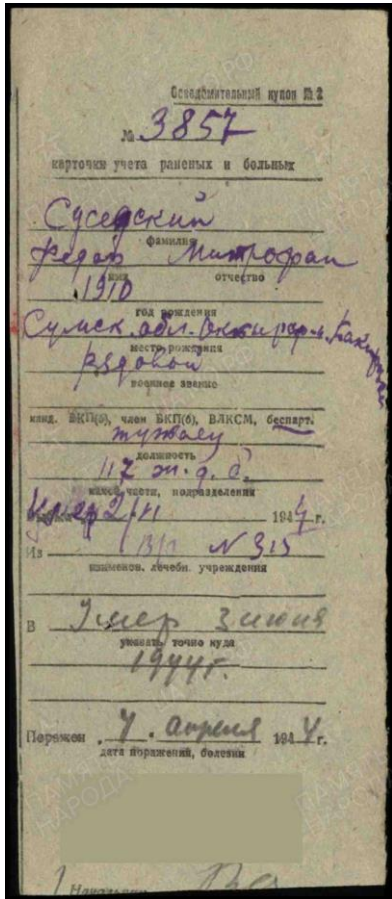 Осведомительный купон № 2
№ 3857
карточки учета раненых и больных
Суседский
фамилия
Федор Митрофан
имя отчество
1910
год рождения
Сумск. обл.
место рождения
рядовой
военное звание
канд. ВКП(б), член ВКП(б), ВЛКСМ, беспарт.
должность
117 ж.д.б.
какой части, подразделения
Умер 2/VI 1944 г.
Из ЭГ N 315
наименов. лечебн. учреждения
В Умер 3 июня
указать точно куда
1944 г.
Поражен 7. апреля 1944 г.
дата поражений, болезни
Начальник